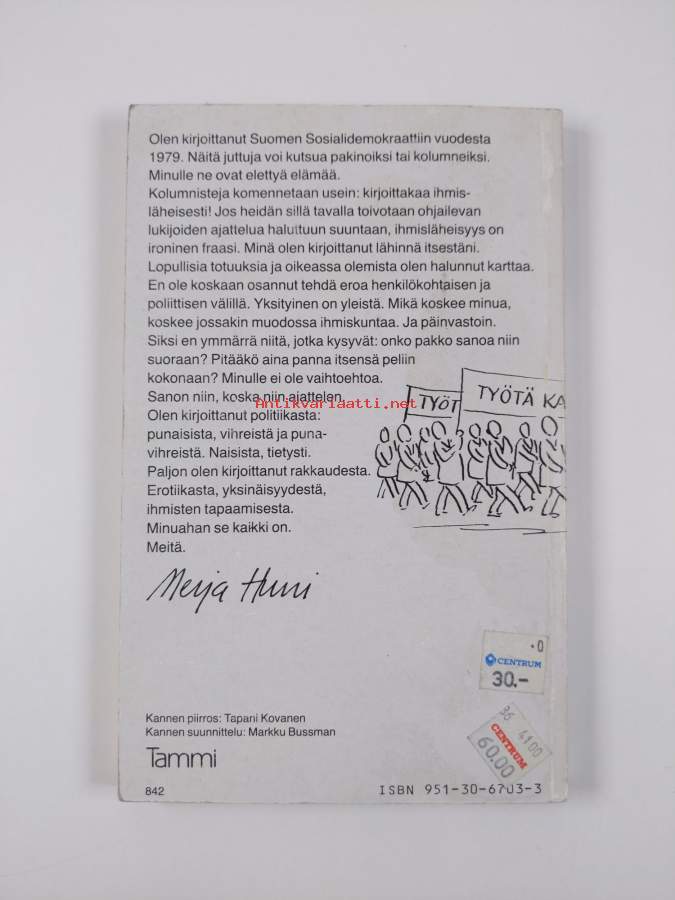 Olen kirjoittanut Suomen Sosialidemokraattiin vuodesta
1979. Näitä juttuja voi kutsua pakinoiksi tai kolumneiksi.
Minulle ne ovat elettyä elämää.
Kolumnisteja komennetaan usein: kirjoittakaa ihmis-
läheisesti! Jos heidän sillä tavalla toivotaan ohjailevan
lukijoiden ajattelua haluttuun suuntaan, ihmisläheisyys on
ironinen fraasi. Minä olen kirjoittanut lähinnä itsestäni.
Lopullisia totuuksia ja oikeassa olemista olen halunnut karttaa.
En ole koskaan osannut tehdä eroa henkilökohtaisen ja
poliittisen välillä. Yksityinen on yleistä. Mikä koskee minua,
koskee jossakin muodossa ihmiskuntaa. Ja päinvastoin.
Siksi en ymmärrä niitä, jotka kysyvät: onko pakko sanoa niin
suoraan? Pitääkö aina panna itsensä peliin
kokonaan? Minulle ei ole vaihtoehtoa.
Sanon niin, koska niin ajattelen.
Antikvariaatti.net
Olen kirjoittanut politiikasta:
punaisista, vihreistä ja puna-
vihreistä. Naisista, tietysti.
Paljon olen kirjoittanut rakkaudesta.
Erotiikasta, yksinäisyydestä,
ihmisten tapaamisesta.
Minuahan se kaikki on.
Meitä.
TYÖT
TYÖTÄ KA
Merja Hurri
·0
CENTRUM
30.-
36 4100
CENTRUM
60.00
Kannen piirros: Tapani Kovanen
Kannen suunnittelu: Markku Bussman
Tammi
842
ISBN 951-30-6703-3